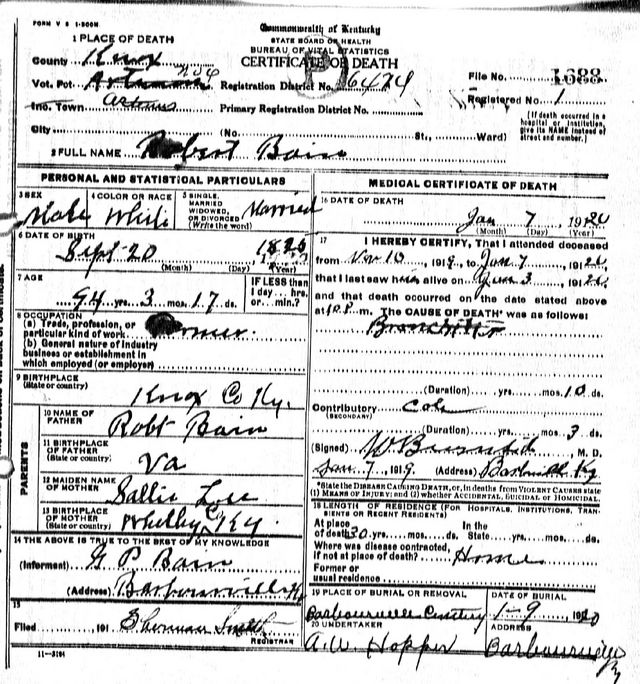 FORM V S 1-200M
Commonwealth of Kentucky
STATE BOARD OF HEALTH
BUREAU OF VITAL STATISTICS
CERTIFICATE OF DEATH
1 PLACE OF DEATH
County Knox
Vot. Pct Registration District No. 6474
File No. 1688
Inc. Town Artemus Primary Registration District No.
Registered No. 1
City (No. St., Ward)
(If death occurred in a hospital or institution, give its NAME instead of street and number.)
2 FULL NAME Robert Bain
PERSONAL AND STATISTICAL PARTICULARS
3 SEX Male
4 COLOR OR RACE White
5 SINGLE, MARRIED WIDOWED, OR DIVORCED (Write the word) Married
6 DATE OF BIRTH
Sept 20 1825
(Month) (Day) (Year)
7 AGE
94 yrs. 3 mos. 17 ds.
IF LESS than 1 day... hrs. or... min.?
8 OCCUPATION
(a) Trade, profession, or particular kind of work Farmer
(b) General nature of industry business or establishment in which employed (or employer)
9 BIRTHPLACE
(State or country) Knox Co Ky.
PARENTS
10 NAME OF FATHER Robt Bain
11 BIRTHPLACE OF FATHER
(State or country) Va
12 MAIDEN NAME OF MOTHER Sallie Lee
13 BIRTHPLACE OF MOTHER
(State or country) Whitley Ky
14 THE ABOVE IS TRUE TO THE BEST OF MY KNOWLEDGE
(Informant) G P Bain
(Address) Barbourville Ky
15
Filed 191 Sherman Smith
REGISTRAR
11-3184
MEDICAL CERTIFICATE OF DEATH
16 DATE OF DEATH
Jan 7 1920
(Month) (Day) (Year)
17 I HEREBY CERTIFY, That I attended deceased
from Nov 10, 1919, to Jan 7, 1920
that I last saw him alive on Jan 3, 1920
and that death occurred on the date stated above
at P. m. The CAUSE OF DEATH* was as follows:
Bronchitis
(Duration) yrs. mos. 10 ds.
Contributory
(SECONDARY)
(Duration) yrs. mos. 3 ds.
(Signed) M. D.
Jan. 7 1919. (Address) Barbville Ky
*State the DISEASE CAUSING DEATH, or, in deaths from VIOLENT CAUSES state (1) MEANS OF INJURY; and (2) whether ACCIDENTAL, SUICIDAL or HOMICIDAL.
18 LENGTH OF RESIDENCE (FOR HOSPITALS, INSTITUTIONS, TRANSIENTS OR RECENT RESIDENTS)
At place of death 30 yrs. mos. ds. In the State yrs. mos. ds.
Where was disease contracted,
if not at place of death? Home
Former or
usual residence
19 PLACE OF BURIAL OR REMOVAL
Barbourville Cemetery
DATE OF BURIAL
1-9 1920
20 UNDERTAKER
A.W. Hopper
ADDRESS
Barbourville Ky